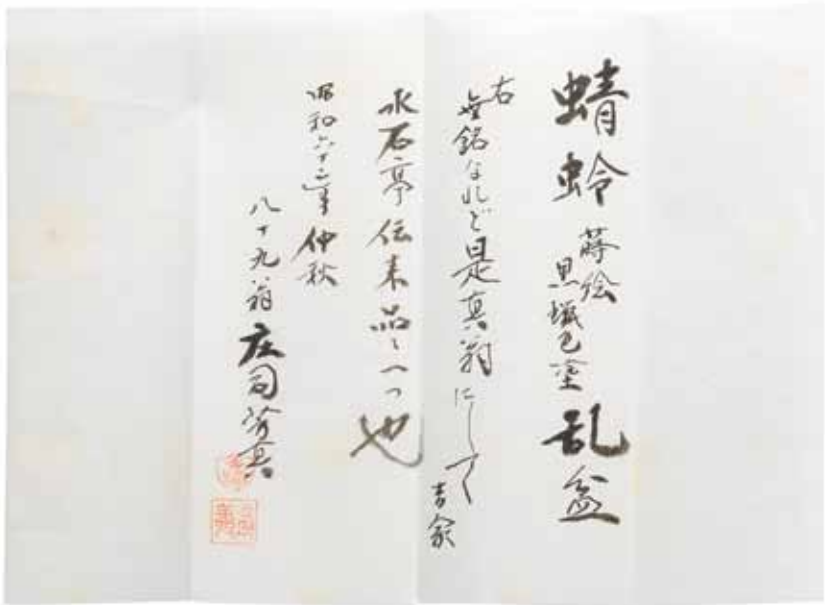 蜻蛉蒔絵黒蝋色塗乱盆
右無銘なれど是真翁にして吉家
水石亭伝来品之一つ也
昭和六十三年仲秋
八十九翁庄司芳真